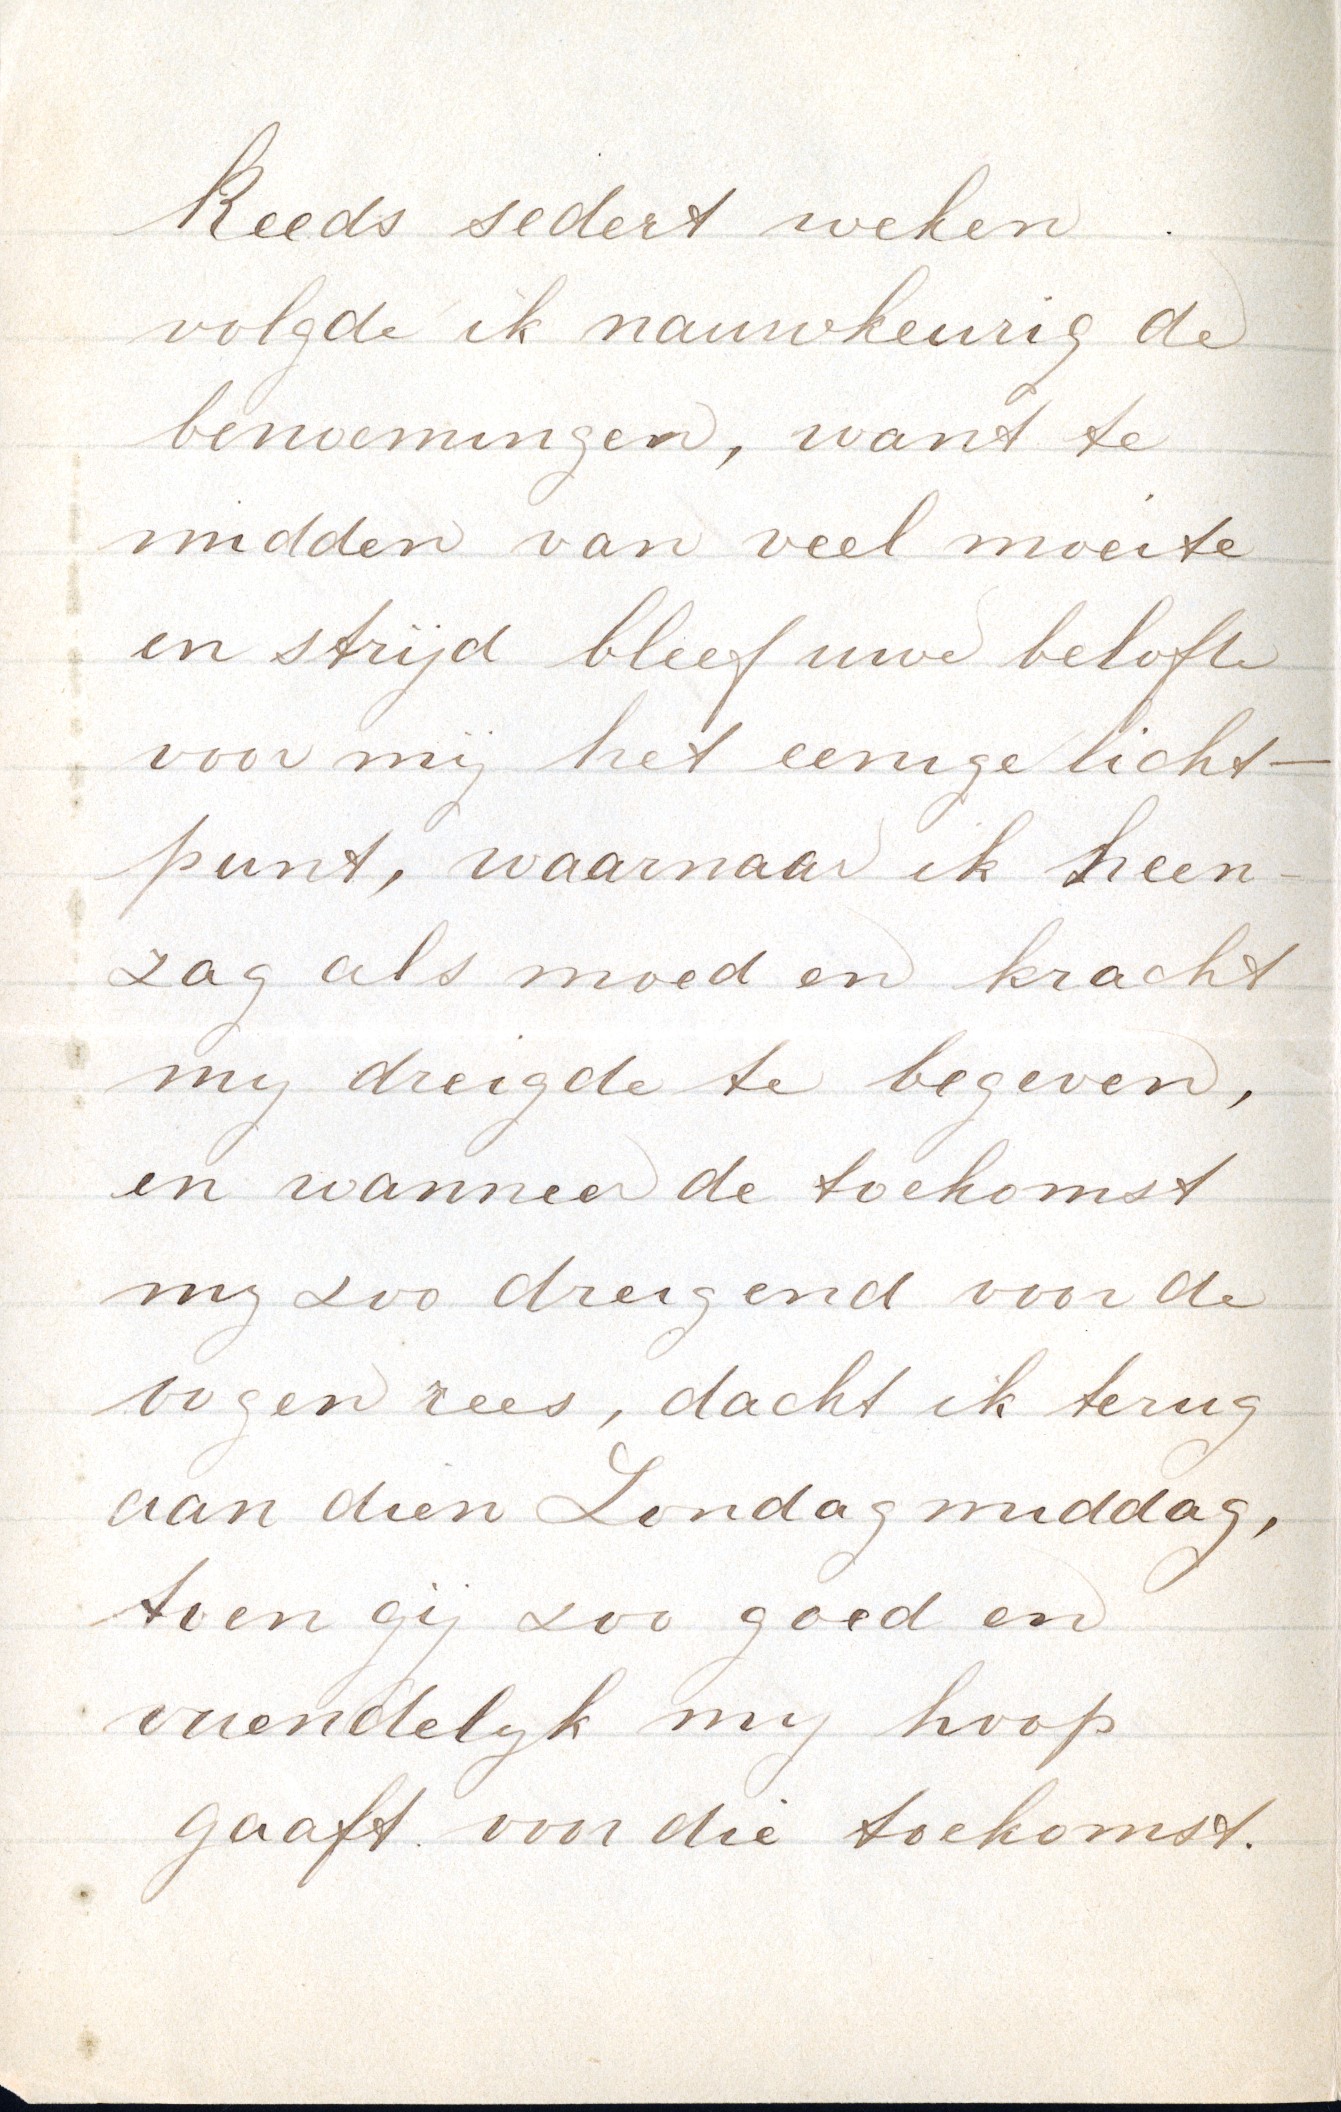 Reeds sedert weken
volgde ik nauwkeurig de
benoemingen, want te
midden van veel moeite
en strijd bleef uwe belofte
voor mij het eenige licht-
punt, waarnaar ik heen-
zag als moed en kracht
my dreigde te begeven,
en wanneer de toekomst
my zoo dreigend voor de
oogen rees, dacht ik terug
aan dien Zondagmiddag,
toen gij zoo goed en
vriendelyk my hoop
gaaft voor die toekomst.